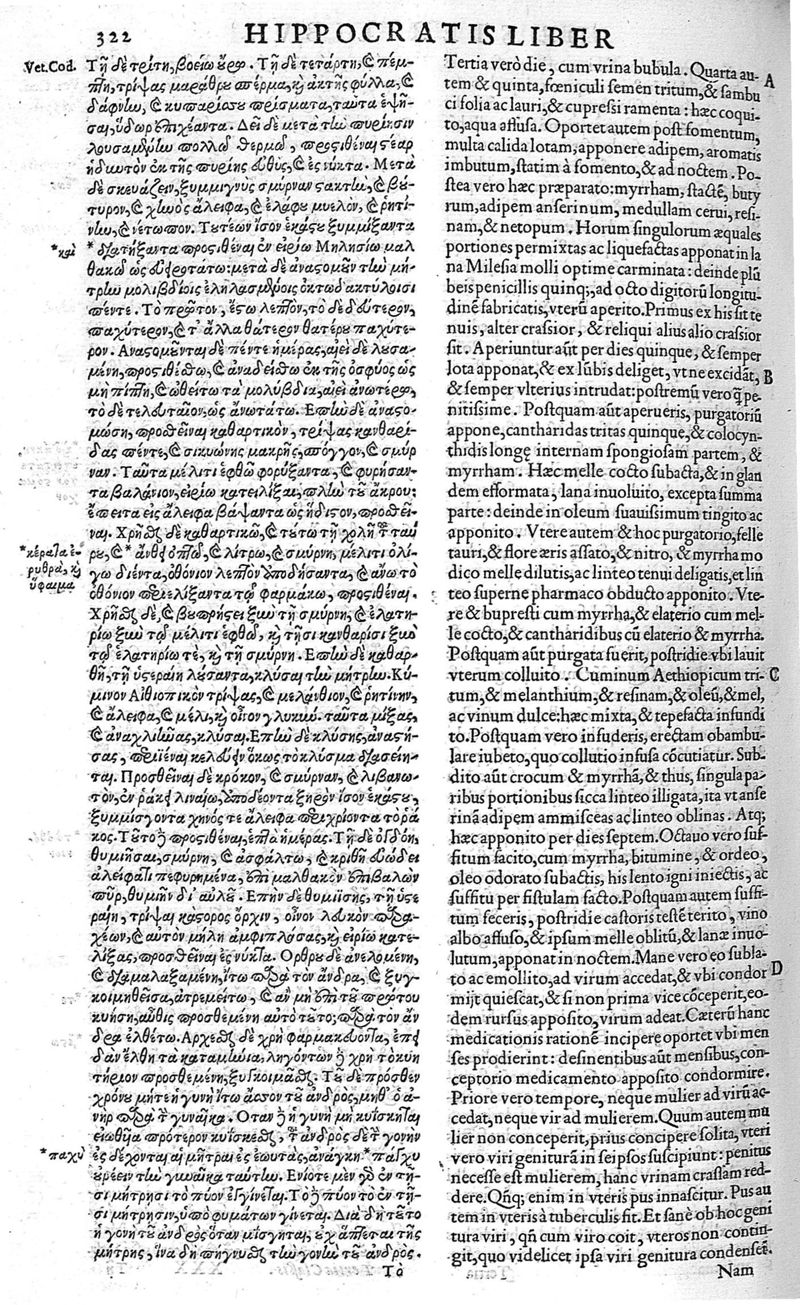 322 HIPPOCRATIS LIBER
Vet. Cod.
Τῇ δὲ τρίτῃ, βοείῳ οὔρῳ. Τῇ δὲ τετάρτῃ, καὶ πέμ-
πτῃ, τρίψας μαράθρου σπέρμα, καὶ ἀκτῆς φύλλα, καὶ
δάφνίω, καὶ κυπαρίσσου πρίσματα, ταῦτα ἑψῆ-
σαι, ὕδωρ ἐπιχέαντα. Δεῖ δὲ μετὰ τὴν πυρίησιν
λουσαμένην πολλῷ θερμῷ, προσθεῖναι στέαρ
ἡδυντὸν ἐκ τῆς πυρίης εὐθὺς, καὶ ἐς νύκτα. Μετὰ
δὲ σκευάζειν, ξυμμιγνὺς σμύρναν στακτὴν, καὶ βού-
τυρον, καὶ χηνὸς ἄλειφα, καὶ ἐλάφου μυελὸν, καὶ ῥητί-
νην, καὶ νέτωπον. Τουτέων ἴσον ἑκάστου ξυμμίξαντα
*καὶ
* διατήξαντα προστιθέναι ἐν εἰρίῳ Μιλησίῳ μαλ
θακῷ ὡς εὐεροτάτῳ· μετὰ δὲ ἀναστομοῦν τὴν μή-
τρην μολιβδίοις ἐληλασμένοις ὀκτωδακτύλοισι
πέντε. Τὸ πρῶτον, ἔστω λεπτὸν, τὸ δὲ δεύτερον,
παχύτερον, καὶ τ' ἄλλα θάτερον θατέρου παχύτε-
ρον. Ἀναστομοῦνται δὲ πέντε ἡμέρας, αἰεὶ δὲ λουσα-
μένη, προστιθέσθω, καὶ ἀναδείσθω ἐκ τῆς ὀσφύος ὡς
μὴ πίπτῃ, καὶ ὠθείτω τὰ μολύβδια, αἰεὶ ἀνωτέρω,
τὸ δὲ τελευταῖον, ὡς ἀνωτάτω. Ἐπὴν δὲ ἀναστο-
μώσῃ, προσθεῖναι καθαρτικὸν, τρίψας κανθαρί-
δας πέντε, καὶ σικυώνης μακρῆς, σπόγγον, καὶ σμύρ
ναν. Ταῦτα μέλιτι ἑφθῷ φορύξαντα, καὶ φυρήσαν-
τα βαλάνιον, εἰρίῳ κατειλίξαι, πλὴν τοῦ ἄκρου:
ἔπειτα εἰς ἄλειφα βάψαντα ὡς ἥδιστον, προσθεῖ-
ναι. Χρῆσθαι δὲ καθαρτικῷ, καὶ τούτῳ τῇ χολῇ τοῦ ταύ
*κέρατα ἐ-
ρυθρὰ, καὶ
ὕφαιμα
ρου, καὶ * ἄνθει ὀπτῷ, καὶ λίτρῳ, καὶ σμύρνῃ, μέλιτι ὀλί-
γῳ διέντα, ὀθόνιον λεπτὸν ὑποδήσαντα, καὶ ἄνω τὸ
ὀθόνιον περιελίξαντα τῷ φαρμάκῳ, προστιθέναι.
Χρῆσθαι δὲ, καὶ βουπρήστει ξὺν τῇ σμύρνῃ, καὶ ἐλατη-
ρίῳ ξὺν τῷ μέλιτι ἑφθῷ, καὶ τῇσι κανθαρίσι ξὺν
τῷ ἐλατηρίῳ τὲ, καὶ τῇ σμύρνῃ. Ἐπὴν δὲ καθαρ-
θῇ, τῇ ὑστεραίῃ λούσαντα, κλύσαι τὴν μήτρην. Κύ-
μινον Αἰθιοπικὸν τρίψας, καὶ μελάνθιον, καὶ ῥητίνην,
καὶ ἄλειφα, καὶ μέλι, καὶ οἶνον γλυκύν. ταῦτα μίξας,
καὶ ἀναχλιῄνας, κλύσαι. Ἐπὴν δὲ κλύσῃς, ἀναστή-
σας, περιϊέναι κελεύειν ὅκως τὸ κλύσμα διασείη-
ται. Προσθεῖναι δὲ κρόκον, καὶ σμύρναν, καὶ λιβανω-
τὸν, ἐν ῥάκει λιναίῳ, ὑποδέοντα ξηρὸν ἴσον ἑκάστου,
ξυμμίσγοντα χηνός τε ἄλειφα περιχρίοντα τὸ ῥά
κος. Τοῦτο προστιθέναι, ἑπτὰ ἡμέρας. Τῇ δὲ ὀγδόῃ,
θυμιῆσαι, σμύρνῃ, καὶ ἀσφάλτῳ, καὶ κριθῇ εὐώδει
ἀλείφατι πεφυρημένα, ἐπὶ μαλθακὸν ἐπιβαλὼν
πῦρ, θυμιῆν δι' αὐλοῦ. Ἐπὴν δὲ θυμιήσῃς, τῇ ὑστε
ραίῃ, τρίψαι κάστορος ὄρχιν, οἶνον λευκὸν παρα-
χέων, καὶ αὐτὸν μέλι ἀμφιπλάσας, καὶ εἰρίῳ κατε-
λίξας, προσθεῖναι ἐς νύκτα. Ὄρθρου δὲ ἀνελομένη,
καὶ διαμαλαξαμένη, ἴτω παρὰ τὸν ἄνδρα, καὶ ξυγ-
κοιμηθεῖσα, ἀτρεμείτω, καὶ ἂν μὴ ἐπὶ τοῦ πρώτου
κυήσῃ, αὖθις προσθεμένη αὐτὸ τοῦτο, παρὰ τὸν ἄν
δρα ἐλθέτω. Ἄρχεσθαι δὲ χρὴ φαρμακεύοντα, ἐπ'
δὰν ἔλθῃ τὰ καταμήνια, ληγόντων δὲ χρὴ τὸ κυη
τήριον προσθεμένη, ξυγκοιμᾶσθαι. Τοῦ δὲ πρόσθεν
χρόνου μήτε ἡ γυνὴ ἴτω ἆσσον τοῦ ἀνδρὸς, μηδ' ὁ ἀ-
νὴρ παρὰ τὴν γυναῖκα. Ὅταν δὲ ἡ γυνὴ μὴ κυΐσκηται
εἰωθυῖα πρότερον κυΐσκεσθαι, τοῦ ἀνδρὸς δὲ τὴν γονὴν
*παχὺ
ἐς δέχονται αἱ μῆτραι ἐς ἑωυτὰς, ἀνάγκη * πάγχυ
οὐρέειν τὴν γυναῖκα ταύτην. Ἐνίοτε μὲν γὰρ ἐν τῇ-
σι μήτρῃσι τὸ πύον ἐγγίνεται. Τὸ δὲ πύον τὸ ἐν τῇ-
σι μήτρῃσιν, ὑπὸ φυμάτων γίνεται. Διὰ δὴ τοῦτο
ἡ γονὴ τοῦ ἀνδρὸς ὅταν μίσγηται, οὐχ ἅπτεται τῆς
μήτρης, ἵνα δὴ πήγνυσθαι τὴν γονὴν τοῦ ἀνδρός.
Τὸ
Tertia verò die, cum vrina bubula. Quarta au-
A
tem & quinta, fœniculi semen tritum, & sambu
ci folia ac lauri, & cupressi ramenta: hæc coqui-
to, aqua affusa. Oportet autem post fomentum,
multa calida lotam, apponere adipem, aromatis
imbutum, statim à fomento, & ad noctem. Po-
stea vero hæc præparato: myrrham, stactẽ, buty
rum, adipem anserinum, medullam cerui, resi-
nam, & netopum. Horum singulorum æquales
portiones permixtas ac liquefactas apponat in la
na Milesia molli optime carminata: deinde plũ
beis penicillis quinq;, ad octo digitorũ longitu-
dinẽ fabricatis, vterũ aperito. Primus ex his sit te
nuis, alter crassior, & reliqui alius alio crassior
sit. Aperiuntur aũt per dies quinque, & semper
lota apponat, & ex lũbis deliget, vt ne excidãt,
B
& semper vlterius intrudat: postremũ vero q̃ pe-
nitissime. Postquam aũt aperueris, purgatoriũ
appone, cantharidas tritas quinque, & colocyn-
thidis longę internam spongiosam partem, &
myrrham. Hæc melle cocto subacta, & in glan
dem efformata, lana inuoluito, excepta summa
parte: deinde in oleum suauissimum tingito ac
apponito. Vtere autem & hoc purgatorio, felle
tauri, & flore æris assato, & nitro, & myrrha mo
dico melle dilutis, ac linteo tenui deligatis, et lin
teo superne pharmaco obducto apponito. Vte-
re & bupresti cum myrrha, & elaterio cum mel-
le cocto, & cantharidibus cũ elaterio & myrrha.
Postquam aũt purgata fuerit, postridie vbi lauit
vterum colluito. Cuminum Aethiopicum tri-
C
tum, & melanthium, & resinam, & oleũ, & mel,
ac vinum dulce: hæc mixta, & tepefacta infundi
to. Postquam vero infuderis, erectam obambu-
lare iubeto, quo collutio infusa cõcutiatur. Sub-
dito aũt crocum & myrrhã, & thus, singula pa-
ribus portionibus sicca linteo illigata, ita vt anse
rinã adipem ammisceas ac linteo oblinas. Atq;
hæc apponito per dies septem. Octauo vero suf-
fitum facito, cum myrrha, bitumine, & ordeo,
oleo odorato subactis, his lento igni iniectis, ac
suffitu per fistulam facto. Postquam autem suffi-
tum feceris, postridie castoris testẽ terito, vino
albo affuso, & ipsum melle oblitũ, & lanæ inuo-
lutum, apponat in noctem. Mane vero eo subla-
D
to ac emollito, ad virum accedat, & vbi condor
mijt quiescat, & si non prima vice cõceperit, eo-
dem rursus apposito, virum adeat. Cæterũ hanc
medicationis rationẽ incipere oportet vbi men
ses prodierint: desinentibus aũt mensibus, con-
ceptorio medicamento apposito condormire.
Priore vero tempore, neque mulier ad virũ ac-
cedat, neque vir ad mulierem. Quum autem mu
lier non conceperit, prius concipere solita, vteri
vero viri geniturã in seipsos suscipiunt: penitus
necesse est mulierem, hanc vrinam crassam red-
dere. Qñq; enim in vteris pus innascitur. Pus au
tem in vteris à tuberculis fit. Et sanè ob hoc geni
tura viri, qñ cum viro coit, vteros non contin-
git, quo videlicet ipsa viri genitura condenset̃.
Nam